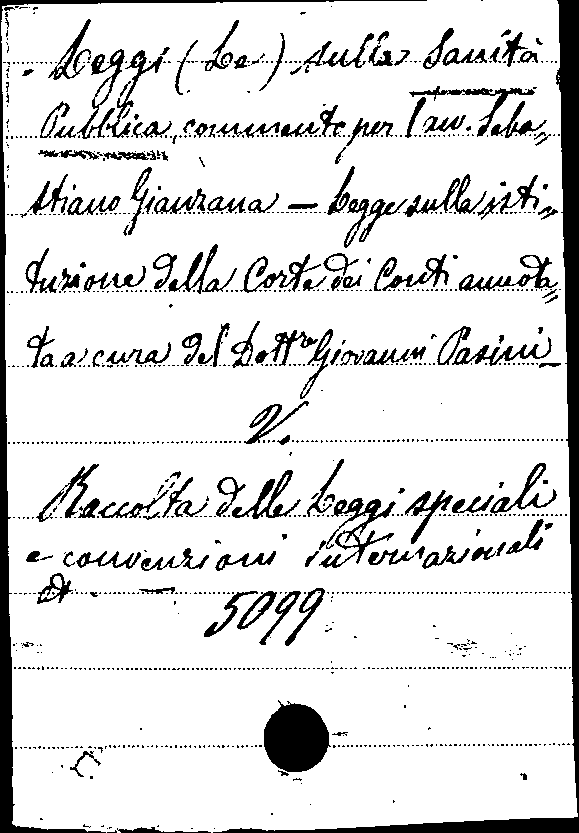 Leggi (Le) sulla Sanità
Pubblica, commento per l'avv. Seba„
stiano Gianzana — Legge sulla isti„
tuzione della Corte dei Conti annota„
ta a cura del Dott.re Giovanni Pasini_
V.
Raccolta delle Leggi speciali
e convenzioni internazionali
5099